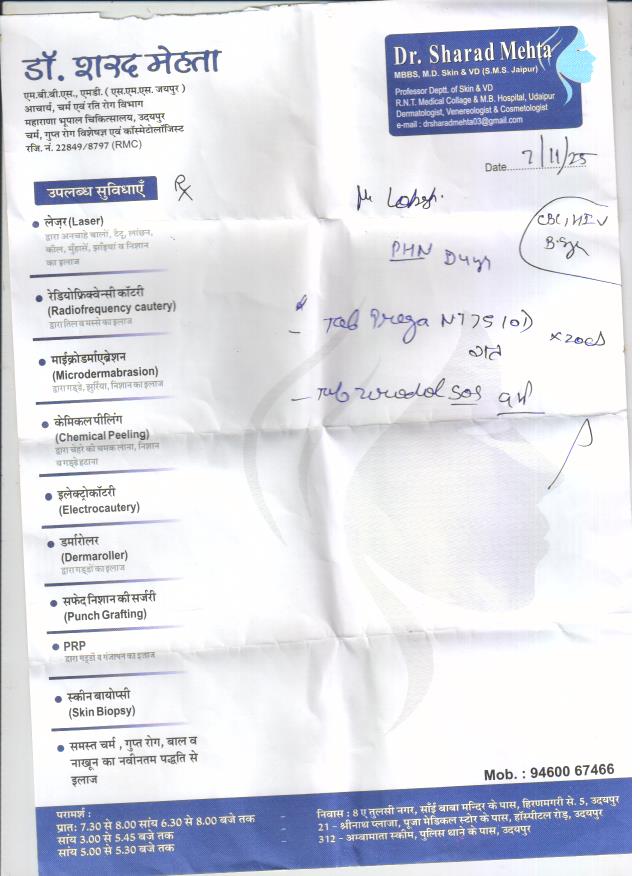 डॉ. शरद मेहता
एम.बी.बी.एस., एमडी. ( एस.एम.एस. जयपुर )
आचार्य, चर्म एवं रति रोग विभाग
महाराणा भूपाल चिकित्सालय, उदयपुर
चर्म, गुप्त रोग विशेषज्ञ एवं कॉस्मेटोलॉजिस्ट
रजि. नं. 22849/8797 (RMC)
Dr. Sharad Mehta
MBBS, M.D. Skin & VD (S.M.S. Jaipur)
Professor Deptt. of Skin & VD
R.N.T. Medical Collage & M.B. Hospital, Udaipur
Dermatologist, Venereologist & Cosmetologist
e-mail : drsharadmehta03@gmail.com
Date 7/11/25
उपलब्ध सुविधाएँ
Rx
CBC, HIV
PHN
Tab Prega NT 75 (OD)
Tab SOS
लेज़र (Laser)
द्वारा अनचाहे बालों, टैटू, लांछन,
कील, मुँहासें, झाइयां व निशान
का इलाज
रेडियोफ्रिक्वेन्सी कॉटरी
(Radiofrequency cautery)
द्वारा तिल व मस्से का इलाज
माईक्रोडर्माएब्रेशन
(Microdermabrasion)
द्वारा गड्डे, झुर्रिया, निशान का इलाज
केमिकल पीलिंग
(Chemical Peeling)
द्वारा चेहरे को चमक लाना, निशान
व गड्डे हटाना
इलेक्ट्रोकॉटरी
(Electrocautery)
डर्मारोलर
(Dermaroller)
द्वारा गड्डों का इलाज
सफेद निशान की सर्जरी
(Punch Grafting)
PRP
द्वारा गड्डों व गंजापन का इलाज
स्कीन बायोप्सी
(Skin Biopsy)
समस्त चर्म , गुप्त रोग, बाल व
नाखून का नवीनतम पद्धति से
इलाज
Mob. : 94600 67466
परामर्श :
प्रातः 7.30 से 8.00 सांय 6.30 से 8.00 बजे तक - निवास : 8 ए तुलसी नगर, साँई बाबा मन्दिर के पास, हिरणमगरी से. 5, उदयपुर
सांय 3.00 से 5.45 बजे तक - 21 - श्रीनाथ प्लाजा, पूजा मेडिकल स्टोर के पास, हॉस्पीटल रोड़, उदयपुर
सांय 5.00 से 5.30 बजे तक - 312 - अम्बामाता स्कीम, पुलिस थाने के पास, उदयपुर